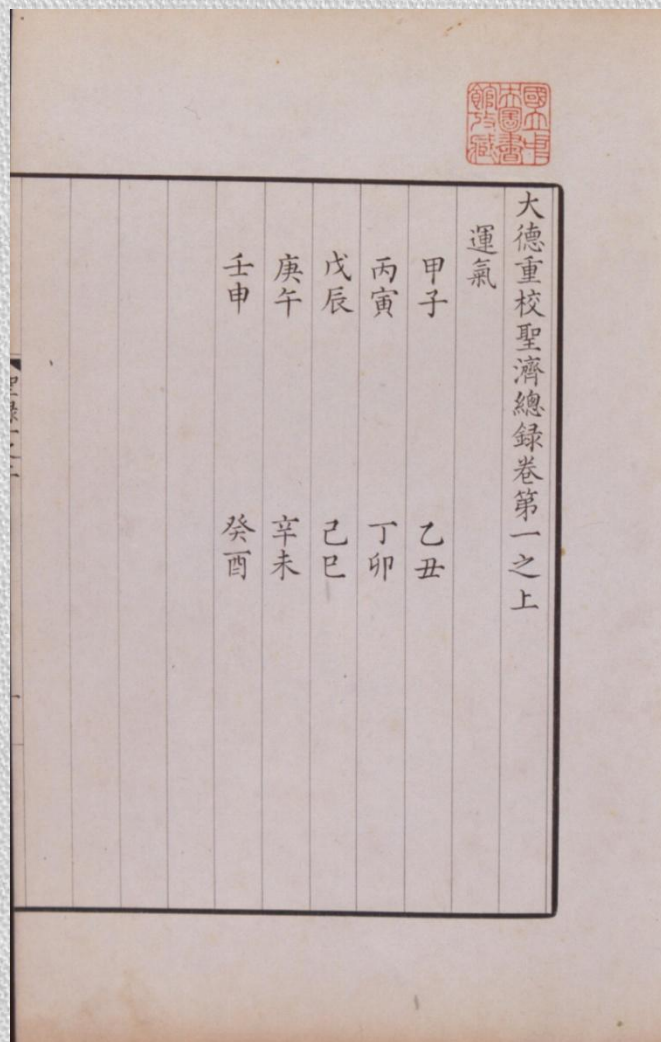 國立中
央圖書
館收藏
大德重校聖濟總録卷第一之上
運氣
甲子 乙丑
丙寅 丁卯
戊辰 己巳
庚午 辛未
壬申 癸酉